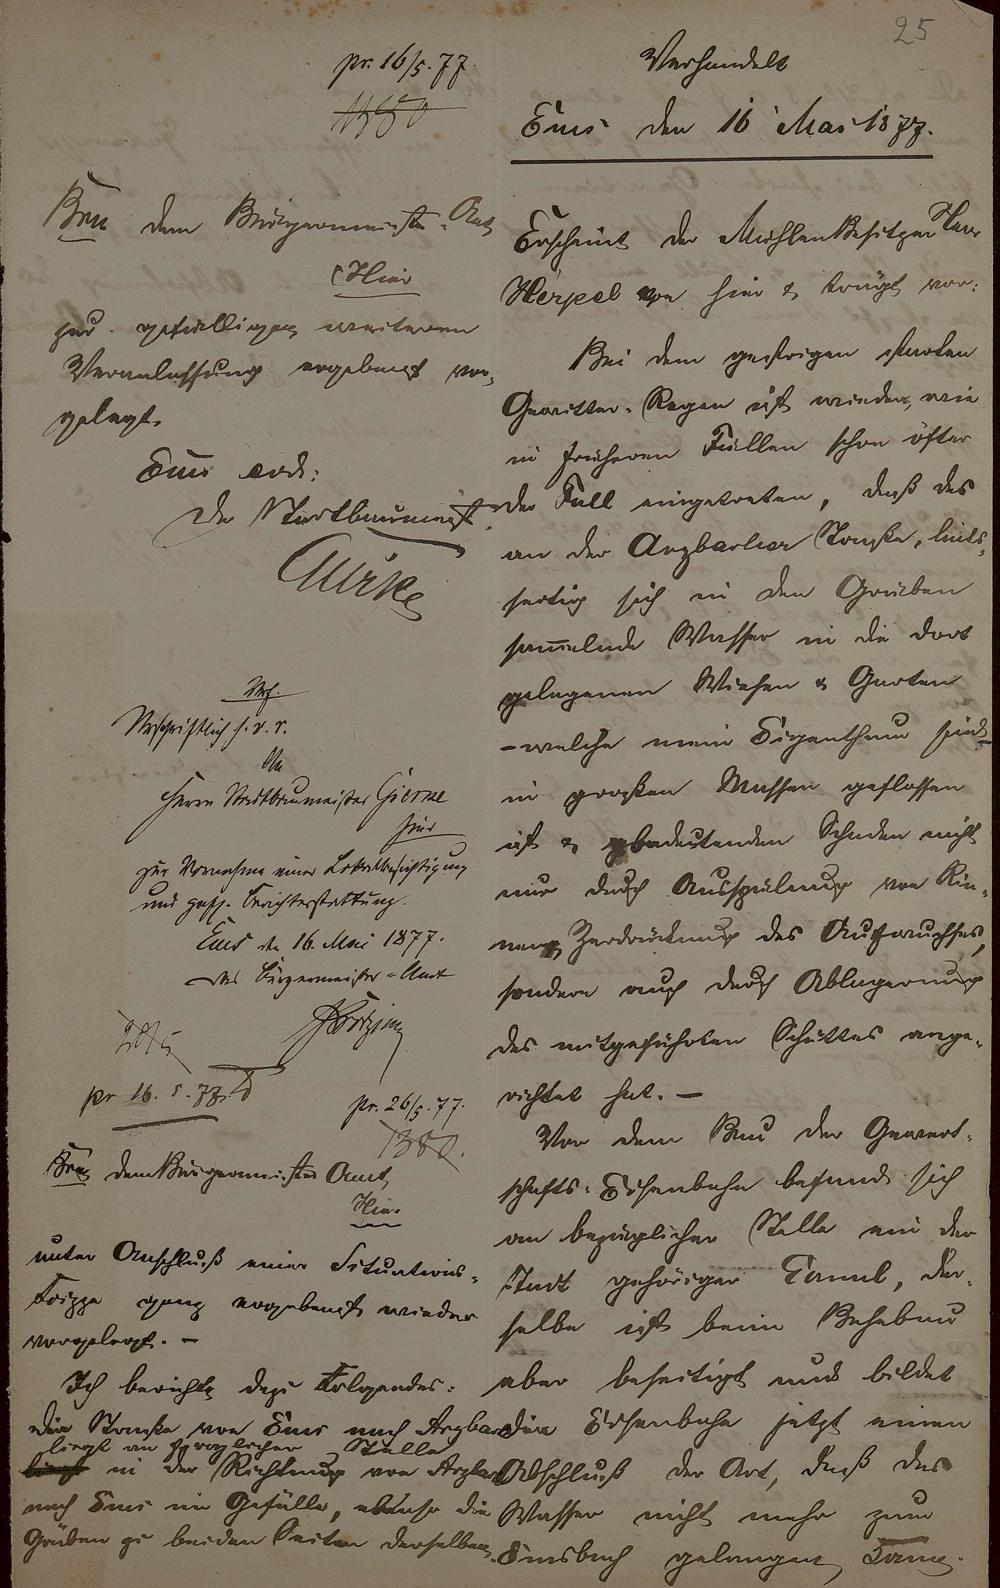 25
pr. 16/5. 77.
1350
Verhandelt
Ems den 16 Mai 1877.
Erscheint der Mühlenbesitzer Herr
Herpel von hier & trägt vor:
Bei dem gestrigen starken
Gewitter-Regen ist wieder, wie
in früheren Fällen schon öfter
der Fall eingetreten, daß das
an der Arzbacher Straße, links-
seitig sich in den Gräben
sammelnde Wasser in die dort
gelegenen Wiesen & Garten
- welche mein Eigenthum sind -
in großen Massen geflossen
ist & bedeutenden Schaden nicht
nur durch Ausspülung von Rin-
nen, Zerdrückung des Aufwuchses,
sondern auch durch Ablagerung
des mitgeführten Schuttes ange-
richtet hat. -
Vor dem Bau der Gewerk-
schafts-Eisenbahn befand sich
an bezüglicher Stelle ein der
Stadt gehöriger Canal, der-
selbe ist beim Bahnbau
aber beseitigt und bildet
die Eisenbahn jetzt einen
Abschluß der Art, daß das
Wasser nicht mehr zum
Emsbach gelangen kann.
dem Bürgermeister-Amt
Hier
zur gefälligen weiteren
Veranlassung ergebenst vor-
gelegt.
Ems eod:
Der Stadtbaumeister
Urschriftlich s. v. r.
An
Herrn Stadtbaumeister
hier
zur Vornahme einer Lokalbesichtigung
und gefl. Berichterstattung.
Ems den 16. Mai 1877.
Das Bürgermeister-Amt
pr 16. 5. 77.
pr. 26/5. 77.
1380.
dem Bürgermeister Amt
Hier
unter Anschluß einer Situations-
skizze ganz ergebenst wieder
vorgelegt. -
Ich berichte dazu Folgendes:
Die Straße von Ems nach Arzbach
liegt an fraglicher Stelle
in der Richtung von Arzbach
nach Ems im Gefälle, ebenso die
Gräben zu beiden Seiten derselben.